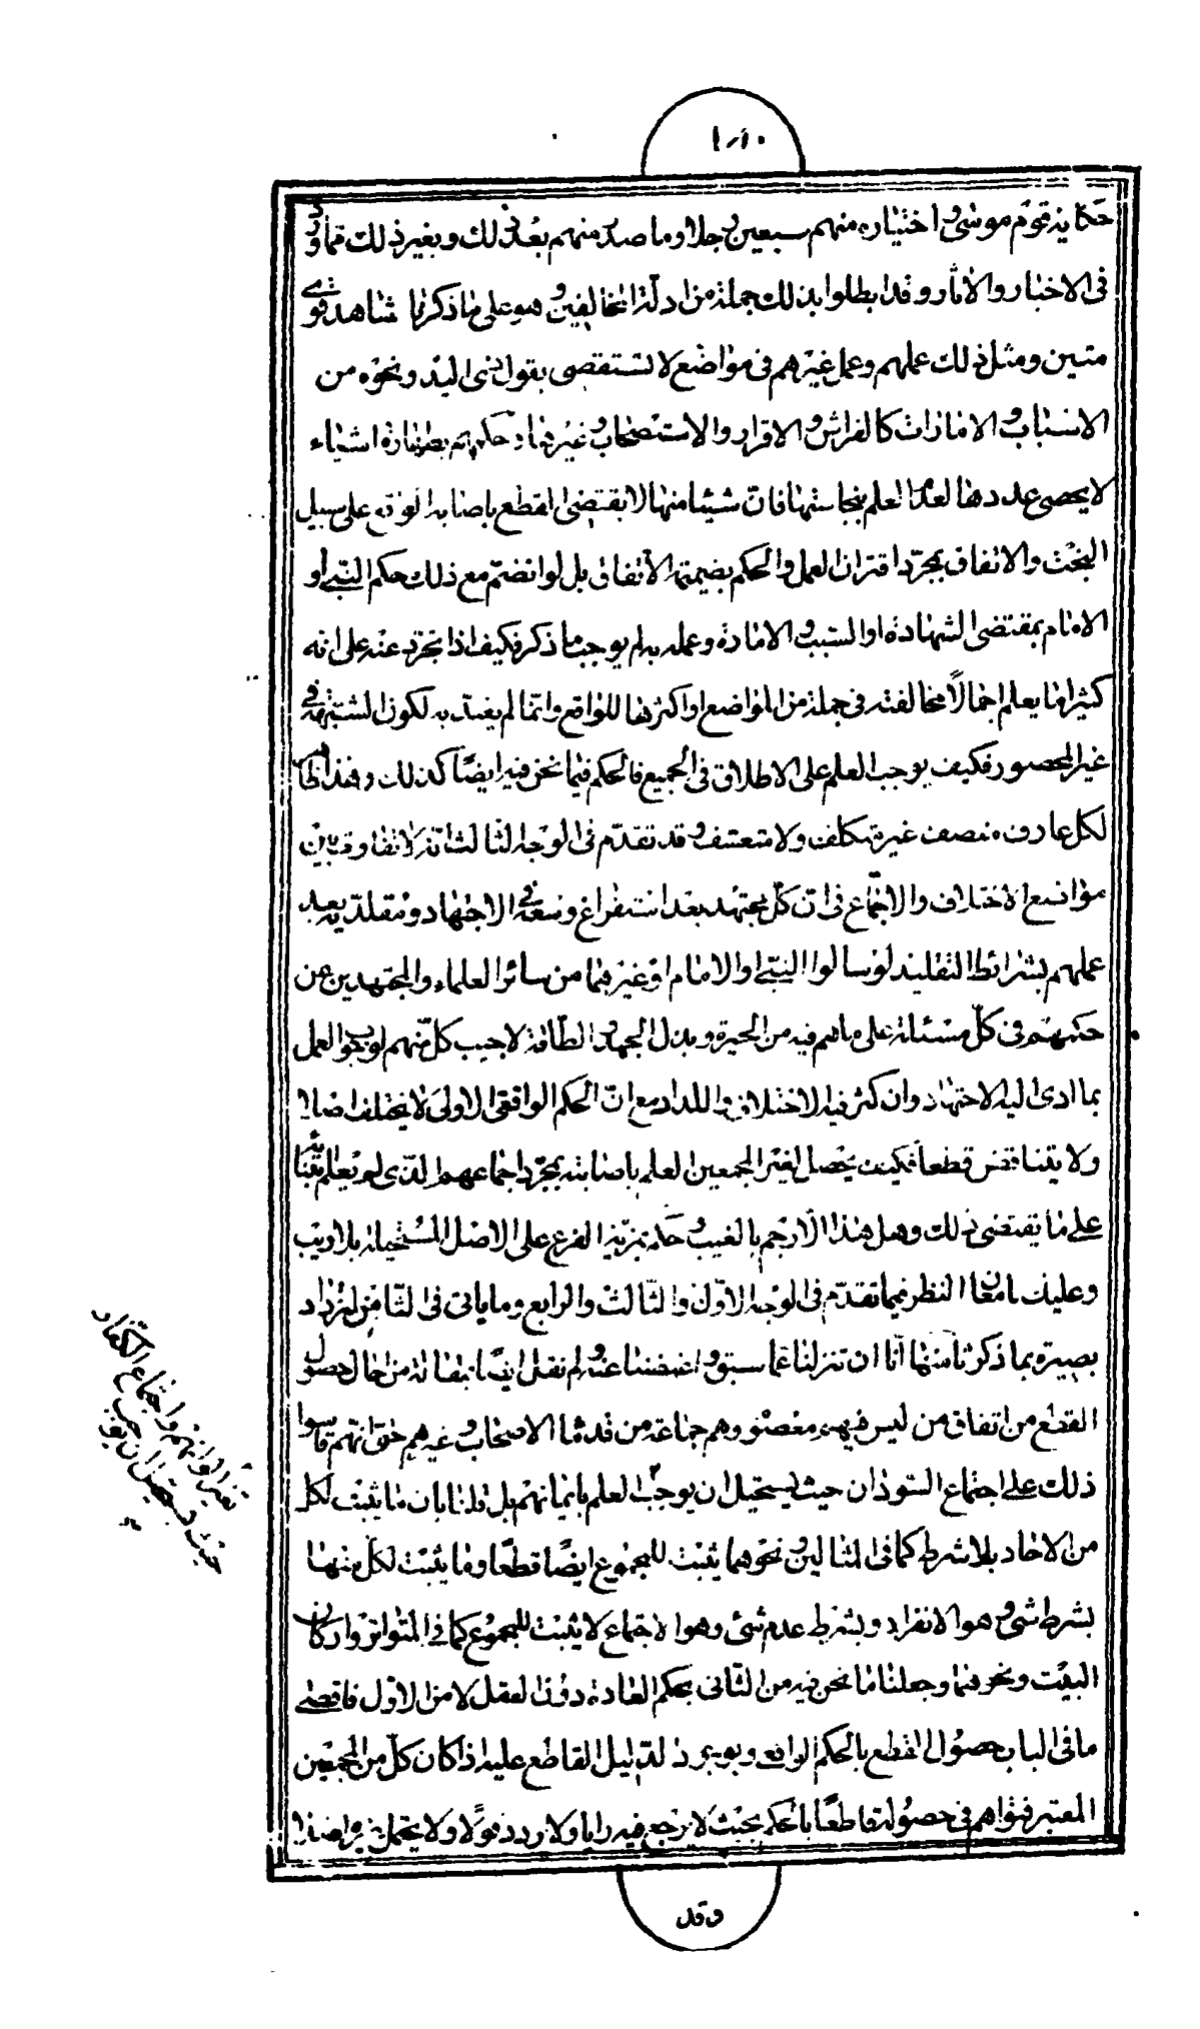 حكاية قوم موسى واختياره منهم سبعين رجلا وما صدر منهم بعد ذلك وبغير ذلك مما ورد
في الاخبار والاثار وقد ابطلوا بذلك جملة من ادلة المخالفين وهو على ما ذكرنا شاهد قوي
متين ومثل ذلك عملهم وعمل غيرهم في مواضع لا تستقصى بقول ذي اليد ونحوه من
الاسباب والامارات كالفراش والاقرار والاستصحاب وغيرها وحكمهم بطهارة اشياء
لا يحصى عددها لعدم العلم بنجاستها فان شيئا منها لا يقتضي القطع باصابة الواقع على سبيل
البخت والاتفاق بمجرد اقتران العمل والحكم بضيمة الاتفاق بل لو انضم مع ذلك حكم النبي او
الامام بمقتضى الشهادة او السبب والامارة وعمله به لم يوجب ما ذكر فكيف اذا تجرد عنه على انه
كثيرا ما يعلم اجمالا مخالفته في جملة من المواضع او اكثرها للواقع وانما لم يعتد به لكون الشبهة في
غير المحصور فكيف يوجب العلم على الاطلاق في الجميع فالحكم فيما نحن فيه ايضا كذلك وهذا ظاهر
لكل عارف منصف غير متكلف ولا متعسف وقد تقدم في الوجه الثالث انه لا تفاوت بين
مواضع الاختلاف والاجماع في ان كل مجتهد بعد استفراغ وسعه في الاجتهاد ومقلديه بعد
عملهم بشرائط التقليد لو سالوا النبي او الامام او غيرهما من سائر العلماء والمجتهدين عن
حكمهم في كل مسئلة على ما هم فيه من الحيرة وبذل الجهد والطاقة لاجيب كل منهم بوجوب العمل
بما ادى اليه الاجتهاد وان كثر فيه الاختلاف واللداد مع ان الحكم الواقعي الاولي لا يختلف اصلا
ولا يتناقض قطعا فكيف يحصل لغير المجمعين العلم باصابته بمجرد اجماعهم الذي لم يعلم بناؤه
على ما يقتضي ذلك وهل هذا الا رجم بالغيب وحكم بمزية الفرع على الاصل المستحيلة بلا ريب
وعليك بامعان النظر فيما تقدم في الوجه الاول والثالث والرابع وما ياتي في الثامن لتزداد
بصيرة بما ذكرنا منها انا ان تنزلنا عما سبق واغمضنا عنه ولم نقل ايضا بمقالة من احال حصول
القطع من اتفاق من ليس فيهم معصوم وهم جماعة من قدماء الاصحاب وغيرهم حتى انهم قاسوا
ذلك على اجتماع السودان حيث يستحيل ان يوجب العلم بايمانهم بل قلنا بان ما يثبت لكل
من الاحاد بلا شرط كما في المثالين ونحوهما يثبت للمجموع ايضا قطعا وما يثبت لكل منها
بشرط شيء وهو الانفراد وبشرط عدم شيء وهو الاجتماع لا يثبت للمجموع كما في المتواتر واركان
البيت ونحوهما وجعلنا ما نحن فيه من الثاني بحكم العادة دون العقل لا من الاول فاقصى
ما في الباب حصول القطع بالحكم الواقعي وبوجود الدليل القاطع عليه اذا كان كل من المجمعين
المعتبر فتواهم في حصوله قاطعا بالحكم بحيث لا يرجع فيه رايا ولا يردد قولا ولا يحتمل غيره اصلا
وقد
واجتماع الكفار
حيث يستحيل ان يوجب